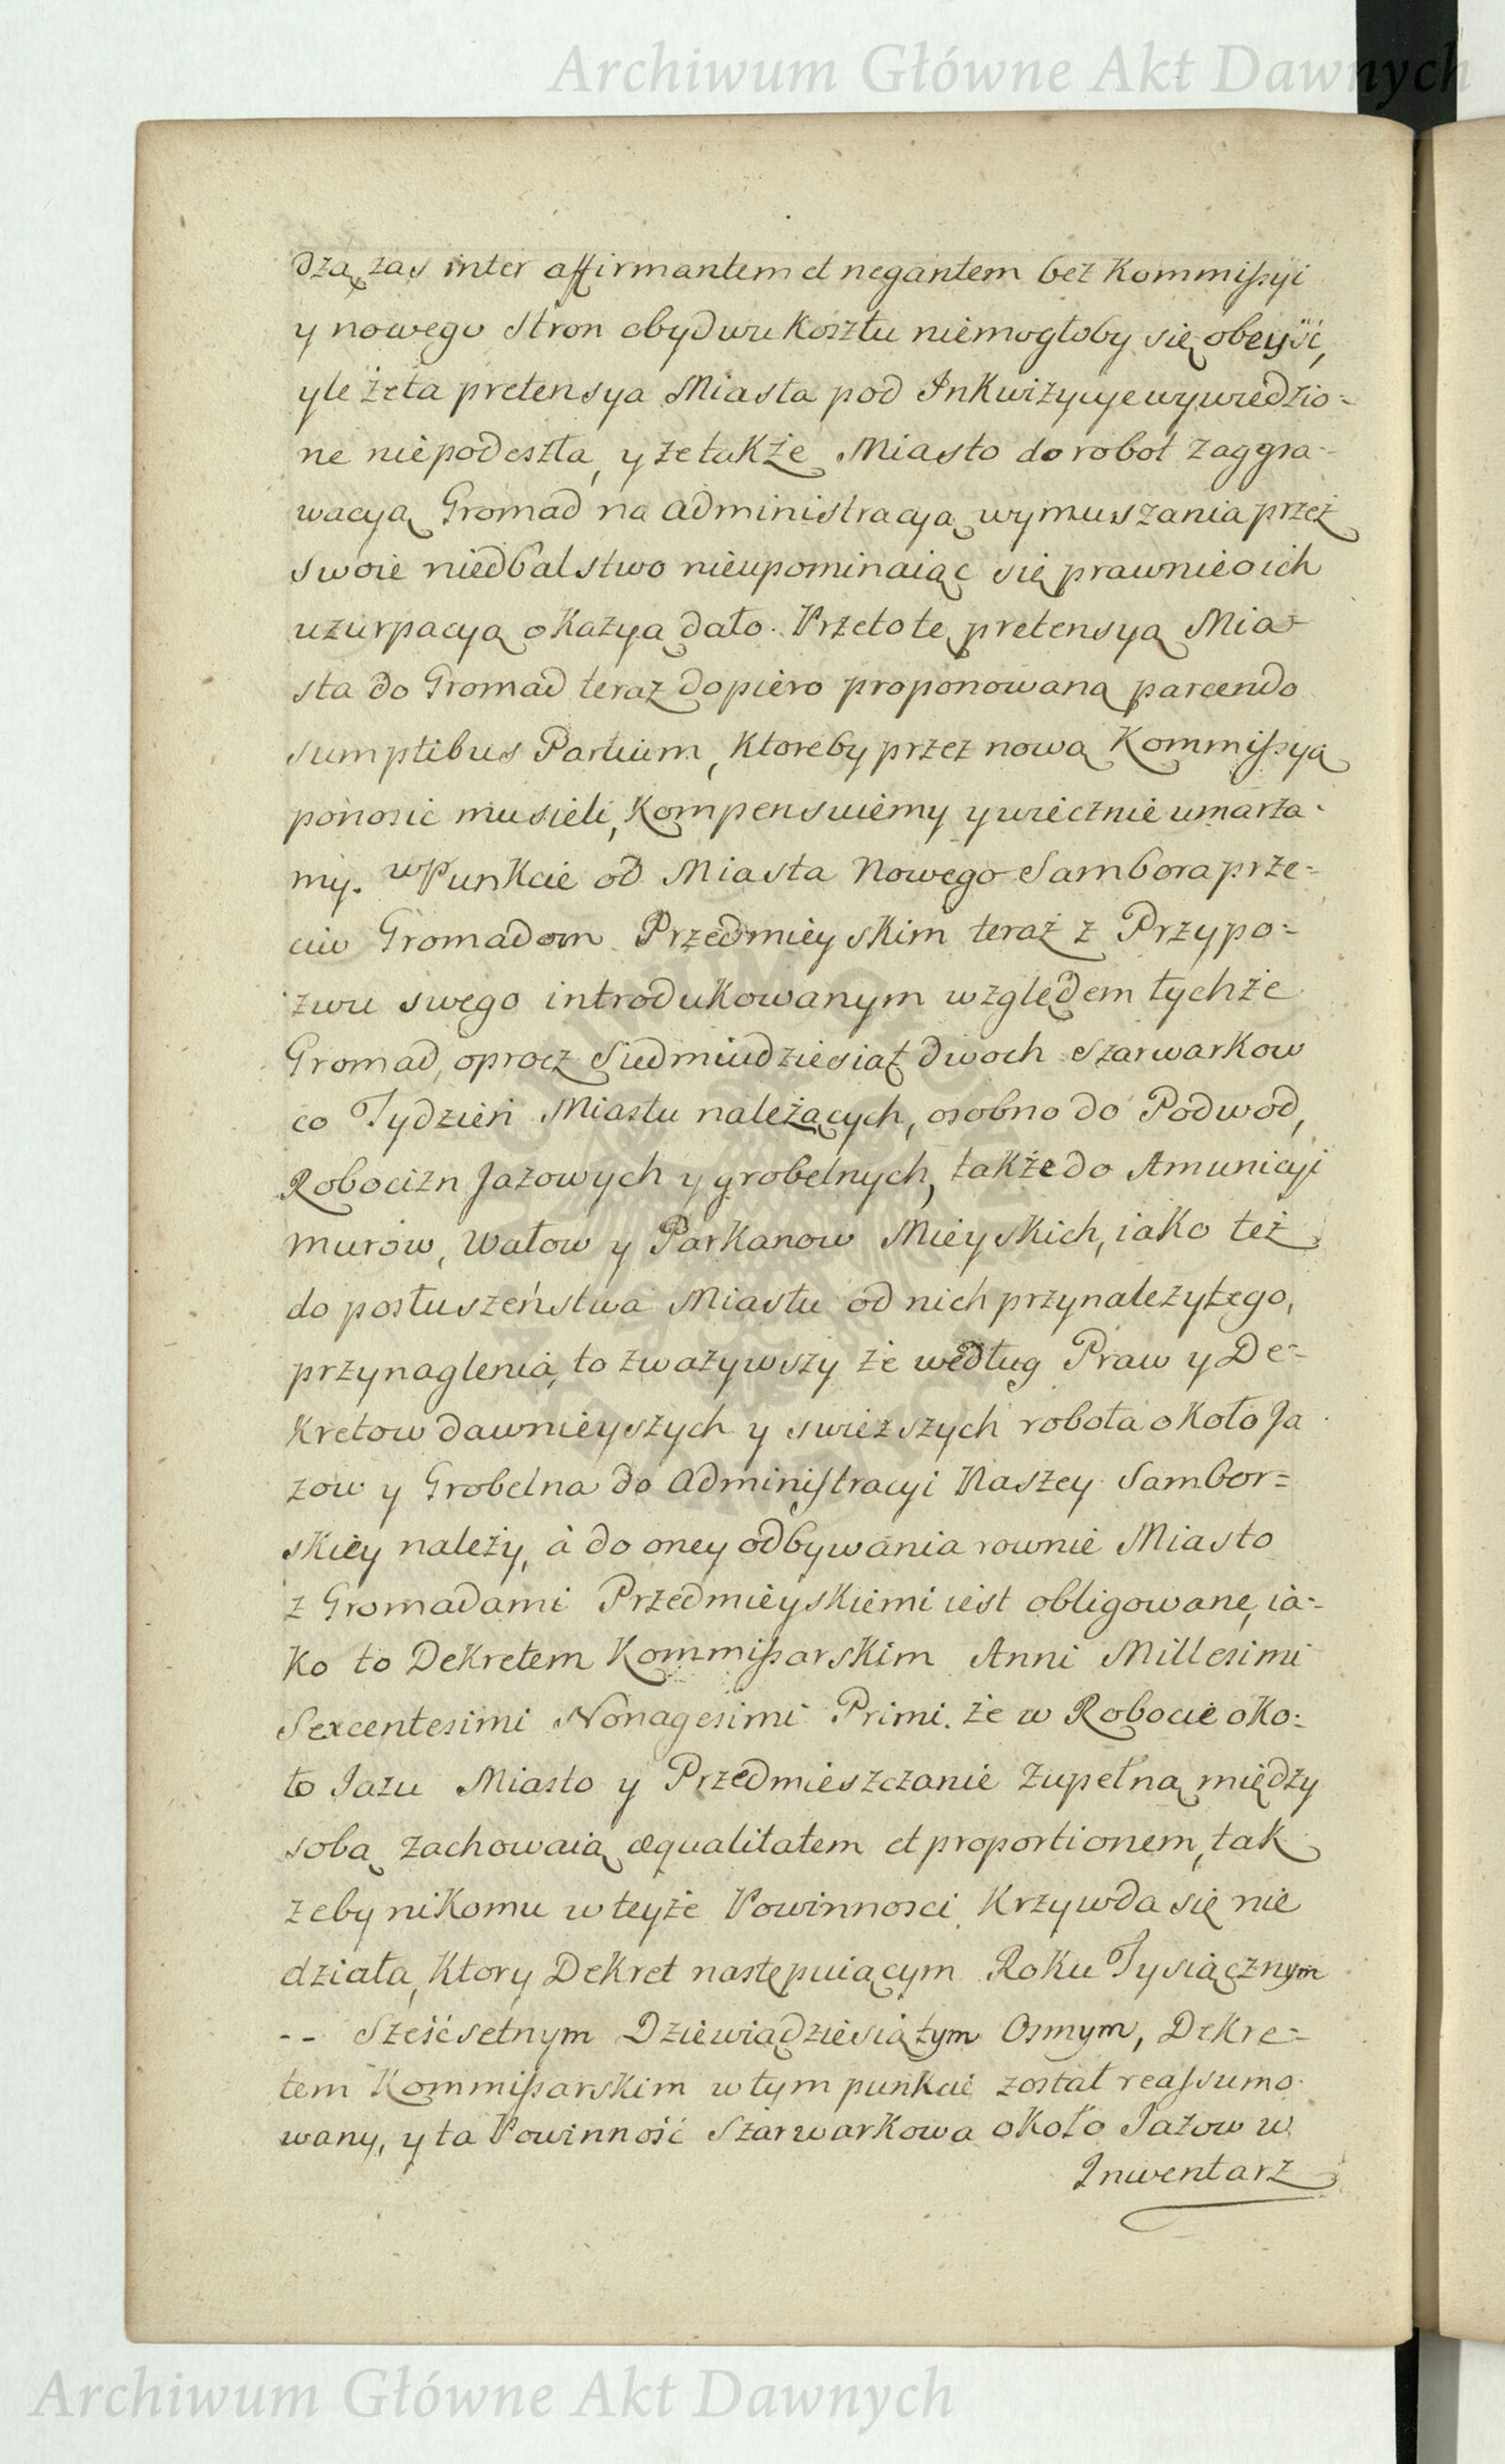 Archiwum Główne Akt Dawnych
dzą zas inter affirmantem et negantem bez Kommißyi
y nowego stron obydwu Kosztu niemogłoby się obeyść,
yle żeta pretensya Miasta pod Inkwizycye wywiedzio=
ne niepodeszła, y że także Miasto do robot z aggra-
wacyą Gromad na administracyą wymuszania przez
swoie niedbalstwo nieupominaiąc się prawnie o ich
uzurpacyą okazyą dało. Przeto tę pretensyą Mia-
sta do Gromad teraz dopiero proponowaną parcendo
sumptibus Partium, Ktoreby przez nową Kommißyą
ponosić musieli, Kompensuiemy y wiecznie umarza-
my. w Punkcie od Miasta Nowego Sambora prze=
ciw Gromadom Przedmieyskim teraz z Przypo=
zwu swego introdukowanym względem tychże
Gromad, oprocz Siedmiudziesiąt dwoch szarwarkow
co Tydzień Miastu należących, osobno do Podwod,
Robocizn Jazowych y grobelnych, także do Amunicyi
murow, Wałow y Parkanow Mieyskich, iako też
do posłuszeństwa Miastu od nich przynależytego,
przynaglenia, to zważywszy że według Praw y De=
kretow dawnieyszych y swieższych robota około Ja
zow y Grobelna do administracyi Naszey Sambor=
skiey należy, à do oney odbywania rownie Miasto
z Gromadami Przedmieyskiemi iest obligowane, ia=
ko to Dekretem Kommißarskim Anni Millesimi
Sexcentesimi Nonagesimi Primi. że w Robocie oko=
ło Jazu Miasto y Przedmieszczanie zupełną między
sobą zachowaią æqualitatem et proportionem, tak
żeby nikomu w teyże Powinnosci Krzywda się nie
działa, Ktory Dekret następuiącym Roku Tysiącznym
-- Sześćsetnym Dziewiądziesiątym Osmym, Dekre=
tem Kommißarskim w tym punkcie został reassumo
wany, y ta Powinność Szarwarkowa około Jazow w
Inwentarz
Archiwum Główne Akt Dawnych